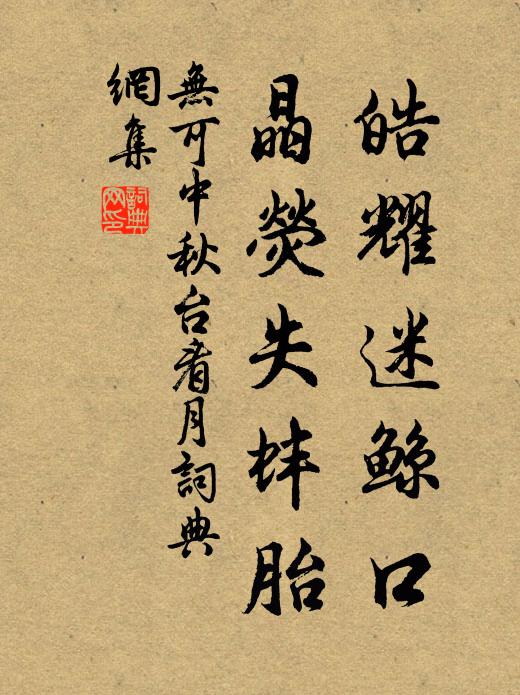 皓耀迷鲸口
晶熒失蚌胎
無可中秋台看月詞典
網集
詞典网印